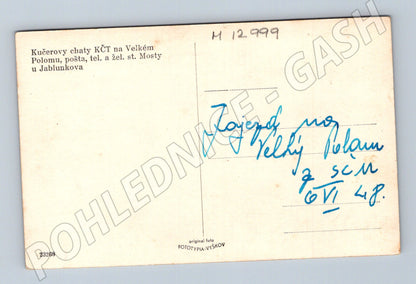 M 12999
Kučerovy chaty KČT na Velkém
Polomu, pošta, tel. a žel. st. Mosty
u Jablunkova
Zájezd na
Velký Polom
z SČM
6 VI 48.
original foto
FOTOTYPIA-VYŠKOV
POHLEDNICE - GASH